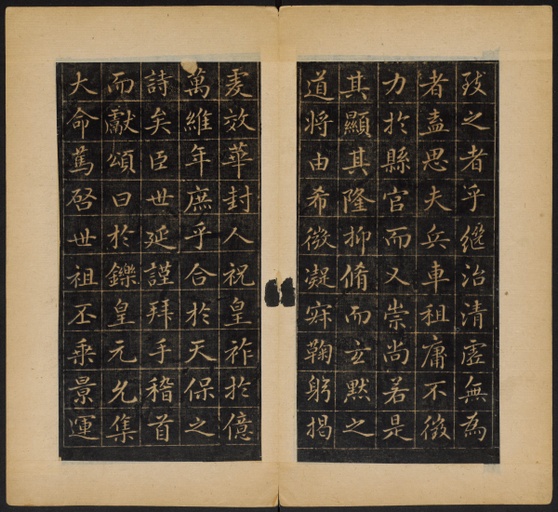 致之者乎繼治清虛無為
者盍思夫兵車租庸不徵
力於縣官而又崇尚若是
其顯其隆抑脩而玄默之
道將由希微凝寂鞠躬揭
虔效華封人祝皇祚於億
萬維年庶乎合於天保之
詩矣臣世延謹拜手稽首
而獻頌曰於鑠皇元允集
大命篤啓世祖丕乘景運